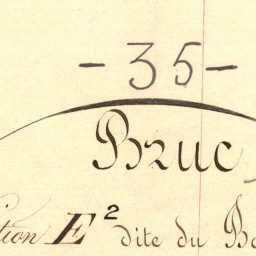 - 35 -
Bruc
tion E² dite du B